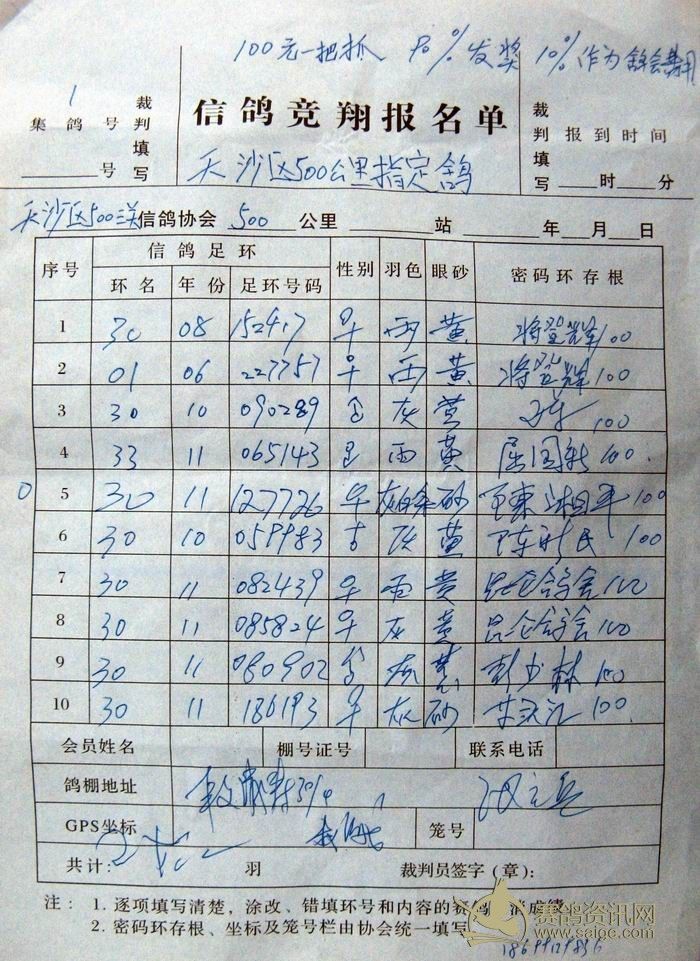 100元一把抓 90%发奖 10%作为鸽会费用
1
集鸽号
号
裁判填写
信鸽竞翔报名单
天沙区500公里指定鸽
裁判填写
报到时间
时 分
天沙区500 信鸽协会 500 公里 站 年 月 日
序号 信鸽足环 性别 羽色 眼砂 密码环存根
环名 年份 足环号码
1 30 08 152417 ♀ 雨 黄 蒋登辉 100
2 01 06 227757 ♀ 雨 黄 蒋登辉 100
3 30 10 090289 灰 黄 100
4 33 11 065143 雨 黄 屈国新 100
0 5 30 11 127726 ♀ 灰白条 砂 100
6 30 10 059983 灰 黄 100
7 30 11 082439 ♀ 雨 黄 昆仑鸽会 100
8 30 11 085824 ♀ 灰 黄 昆仑鸽会 100
9 30 11 080902 灰 黄 林 100
10 30 11 186193 ♀ 灰 砂 100
会员姓名 棚号证号 联系电话
鸽棚地址
GPS坐标 笼号
共计: 羽 裁判员签字(章):
注: 1. 逐项填写清楚，涂改、错填环号和内容的赛鸽 成绩
2. 密码环存根、坐标及笼号栏由协会统一填写
赛鸽资讯网
www.saige.com